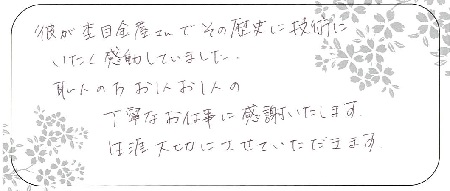 彼が杢目金屋さんでその歴史に技術に
いたく感動していました.
職人の方お1人お1人の
丁寧なお仕事に感謝いたします.
生涯大切にさせていただきます.